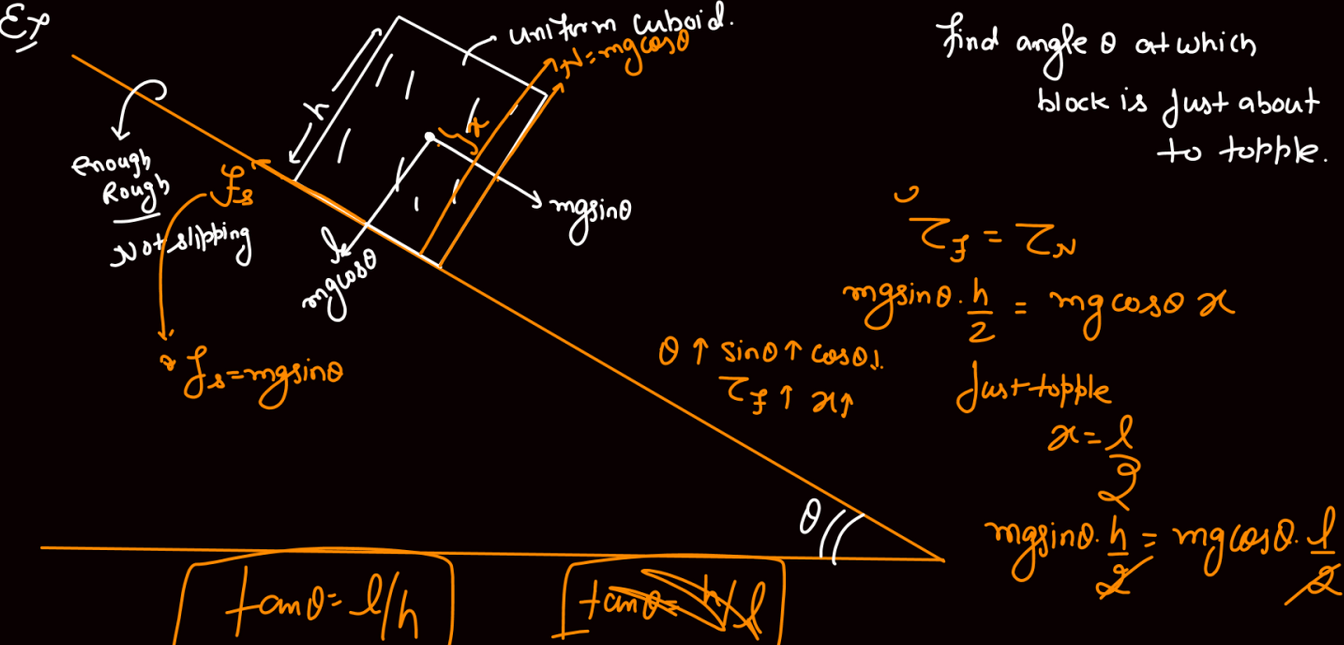 Ex
uniform cuboid.
N=mgcosθ
h
x
enough
Rough
Not slipping
fs
mgsinθ
mgcosθ
fs=mgsinθ
θ
find angle θ at which
block is just about
to topple.
τf = τN
mgsinθ. h/2 = mgcosθ x
θ ↑ sinθ↑ cosθ↓
τf ↑ x↑
Just topple
x = l/2
mgsinθ. h/2 = mgcosθ. l/2
tanθ = l/h
tanθ = h/l